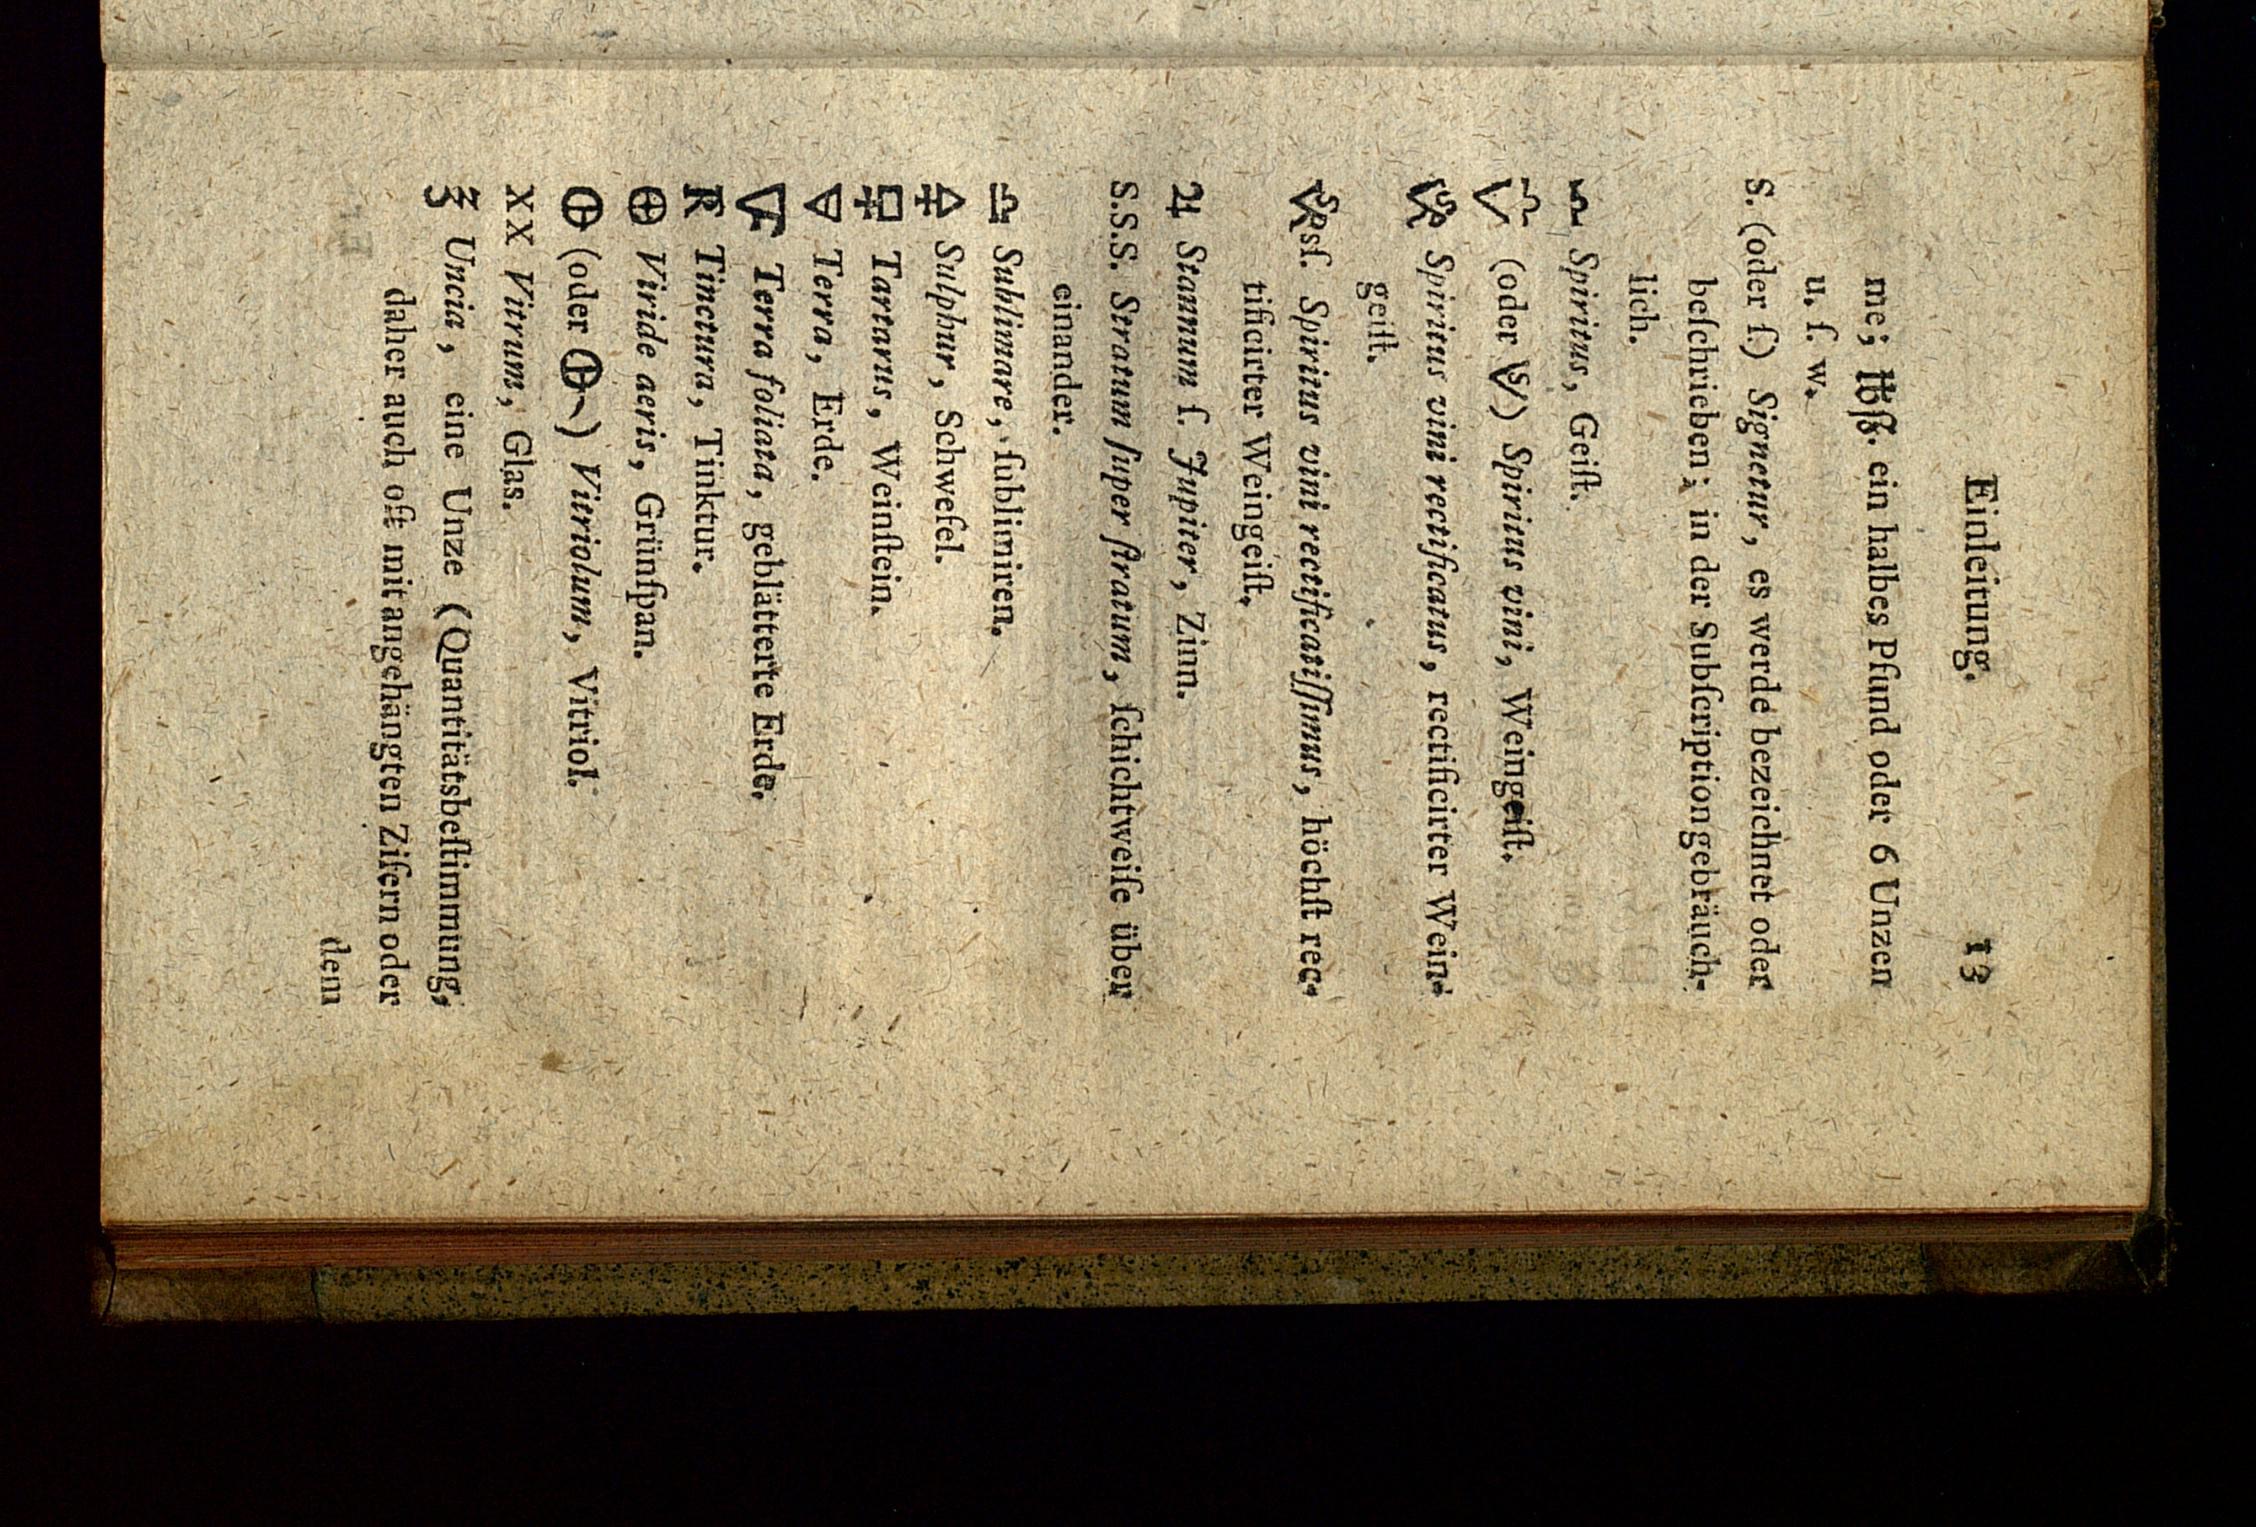 Einleitung. 13
me; ℔ß. ein halbes Pfund oder 6 Unzen
u. ſ. w.
S. (oder ſ.) Signetur, es werde bezeichnet oder
beſchrieben; in der Subſcription gebräuch-
lich.
Spiritus, Geiſt.
(oder ) Spiritus vini, Weingeiſt.
Spiritus vini rectificatus, rectificirter Wein-
geiſt.
Spiritus vini rectificatiſſimus, höchſt rec-
tificirter Weingeiſt.
♃ Stannum ſ. Jupiter, Zinn.
S.S.S. Stratum ſuper ſtratum, ſchichtweiſe über
einander.
Sublimare, ſublimiren.
🜍 Sulphur, Schwefel.
Tartarus, Weinſtein.
🜃 Terra, Erde.
Terra foliata, geblätterte Erde.
Tinctura, Tinktur.
⊕ Viride aeris, Grünſpan.
(oder ) Vitriolum, Vitriol.
XX Vitrum, Glas.
℥ Uncia, eine Unze (Quantitätsbeſtimmung,
daher auch oft mit angehängten Zifern oder
dem